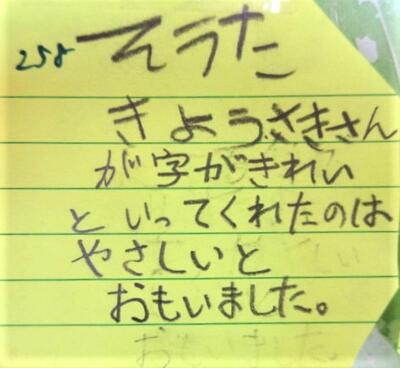 258 そうた
きようさきさん
が字がきれい
といってくれたのは
やさしいと
おもいました。
おもいました。